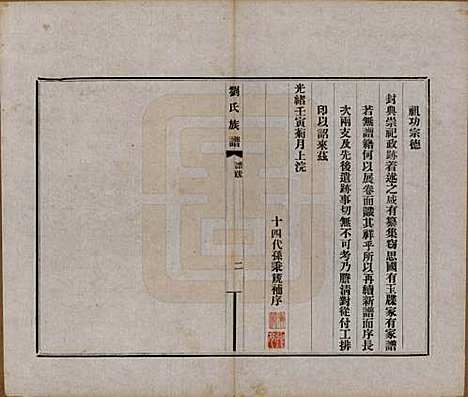 祖功宗德
封典崇祀政跡着述之咸有纂集竊思國有玉牒家有家譜
若無譜籍何以展卷而識其祥乎所以再續新譜而序長
次兩支及先後遺跡事切無不可考乃謄清對從付工排
印以詔來茲
光緒壬寅菊月上浣
十四代孫秉
補序
劉氏族譜
二